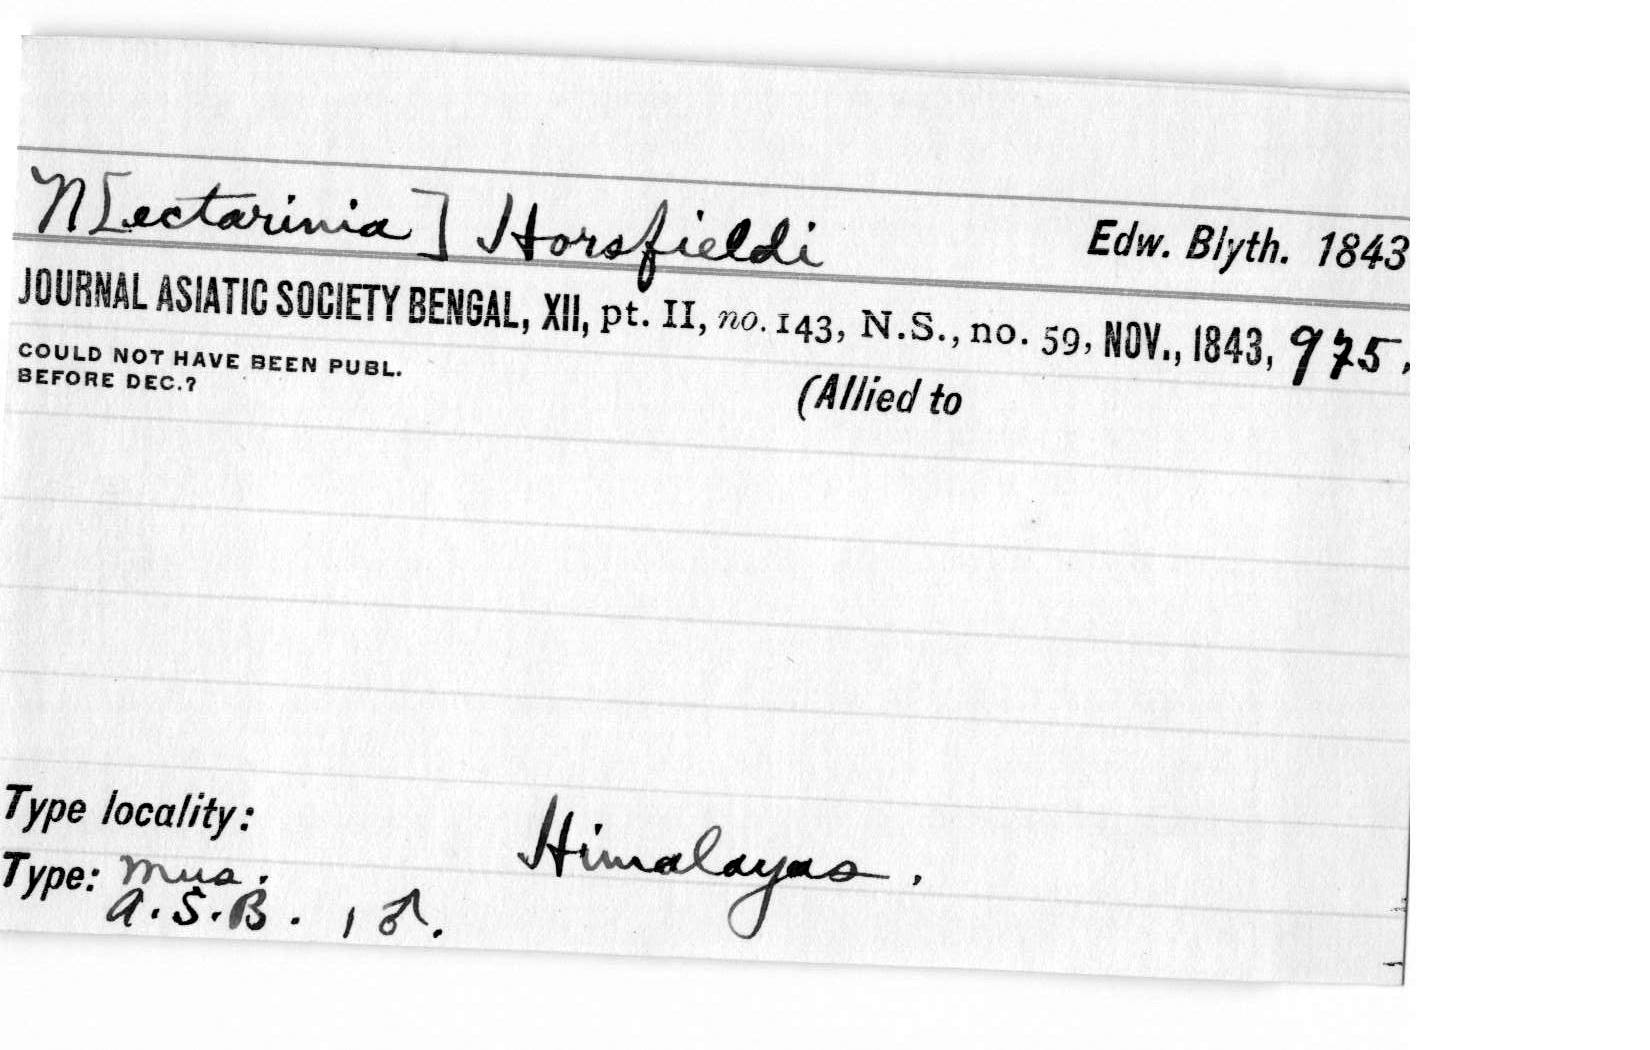 N[ectarinia] Horsfieldi Edw. Blyth. 1843
JOURNAL ASIATIC SOCIETY BENGAL, XII, pt. II, no. 143, N.S., no. 59, NOV., 1843, 975.
COULD NOT HAVE BEEN PUBL.
BEFORE DEC.?
(Allied to
Type locality: Himalayas.
Type: Mus.
A.S.B. 1 ♂.